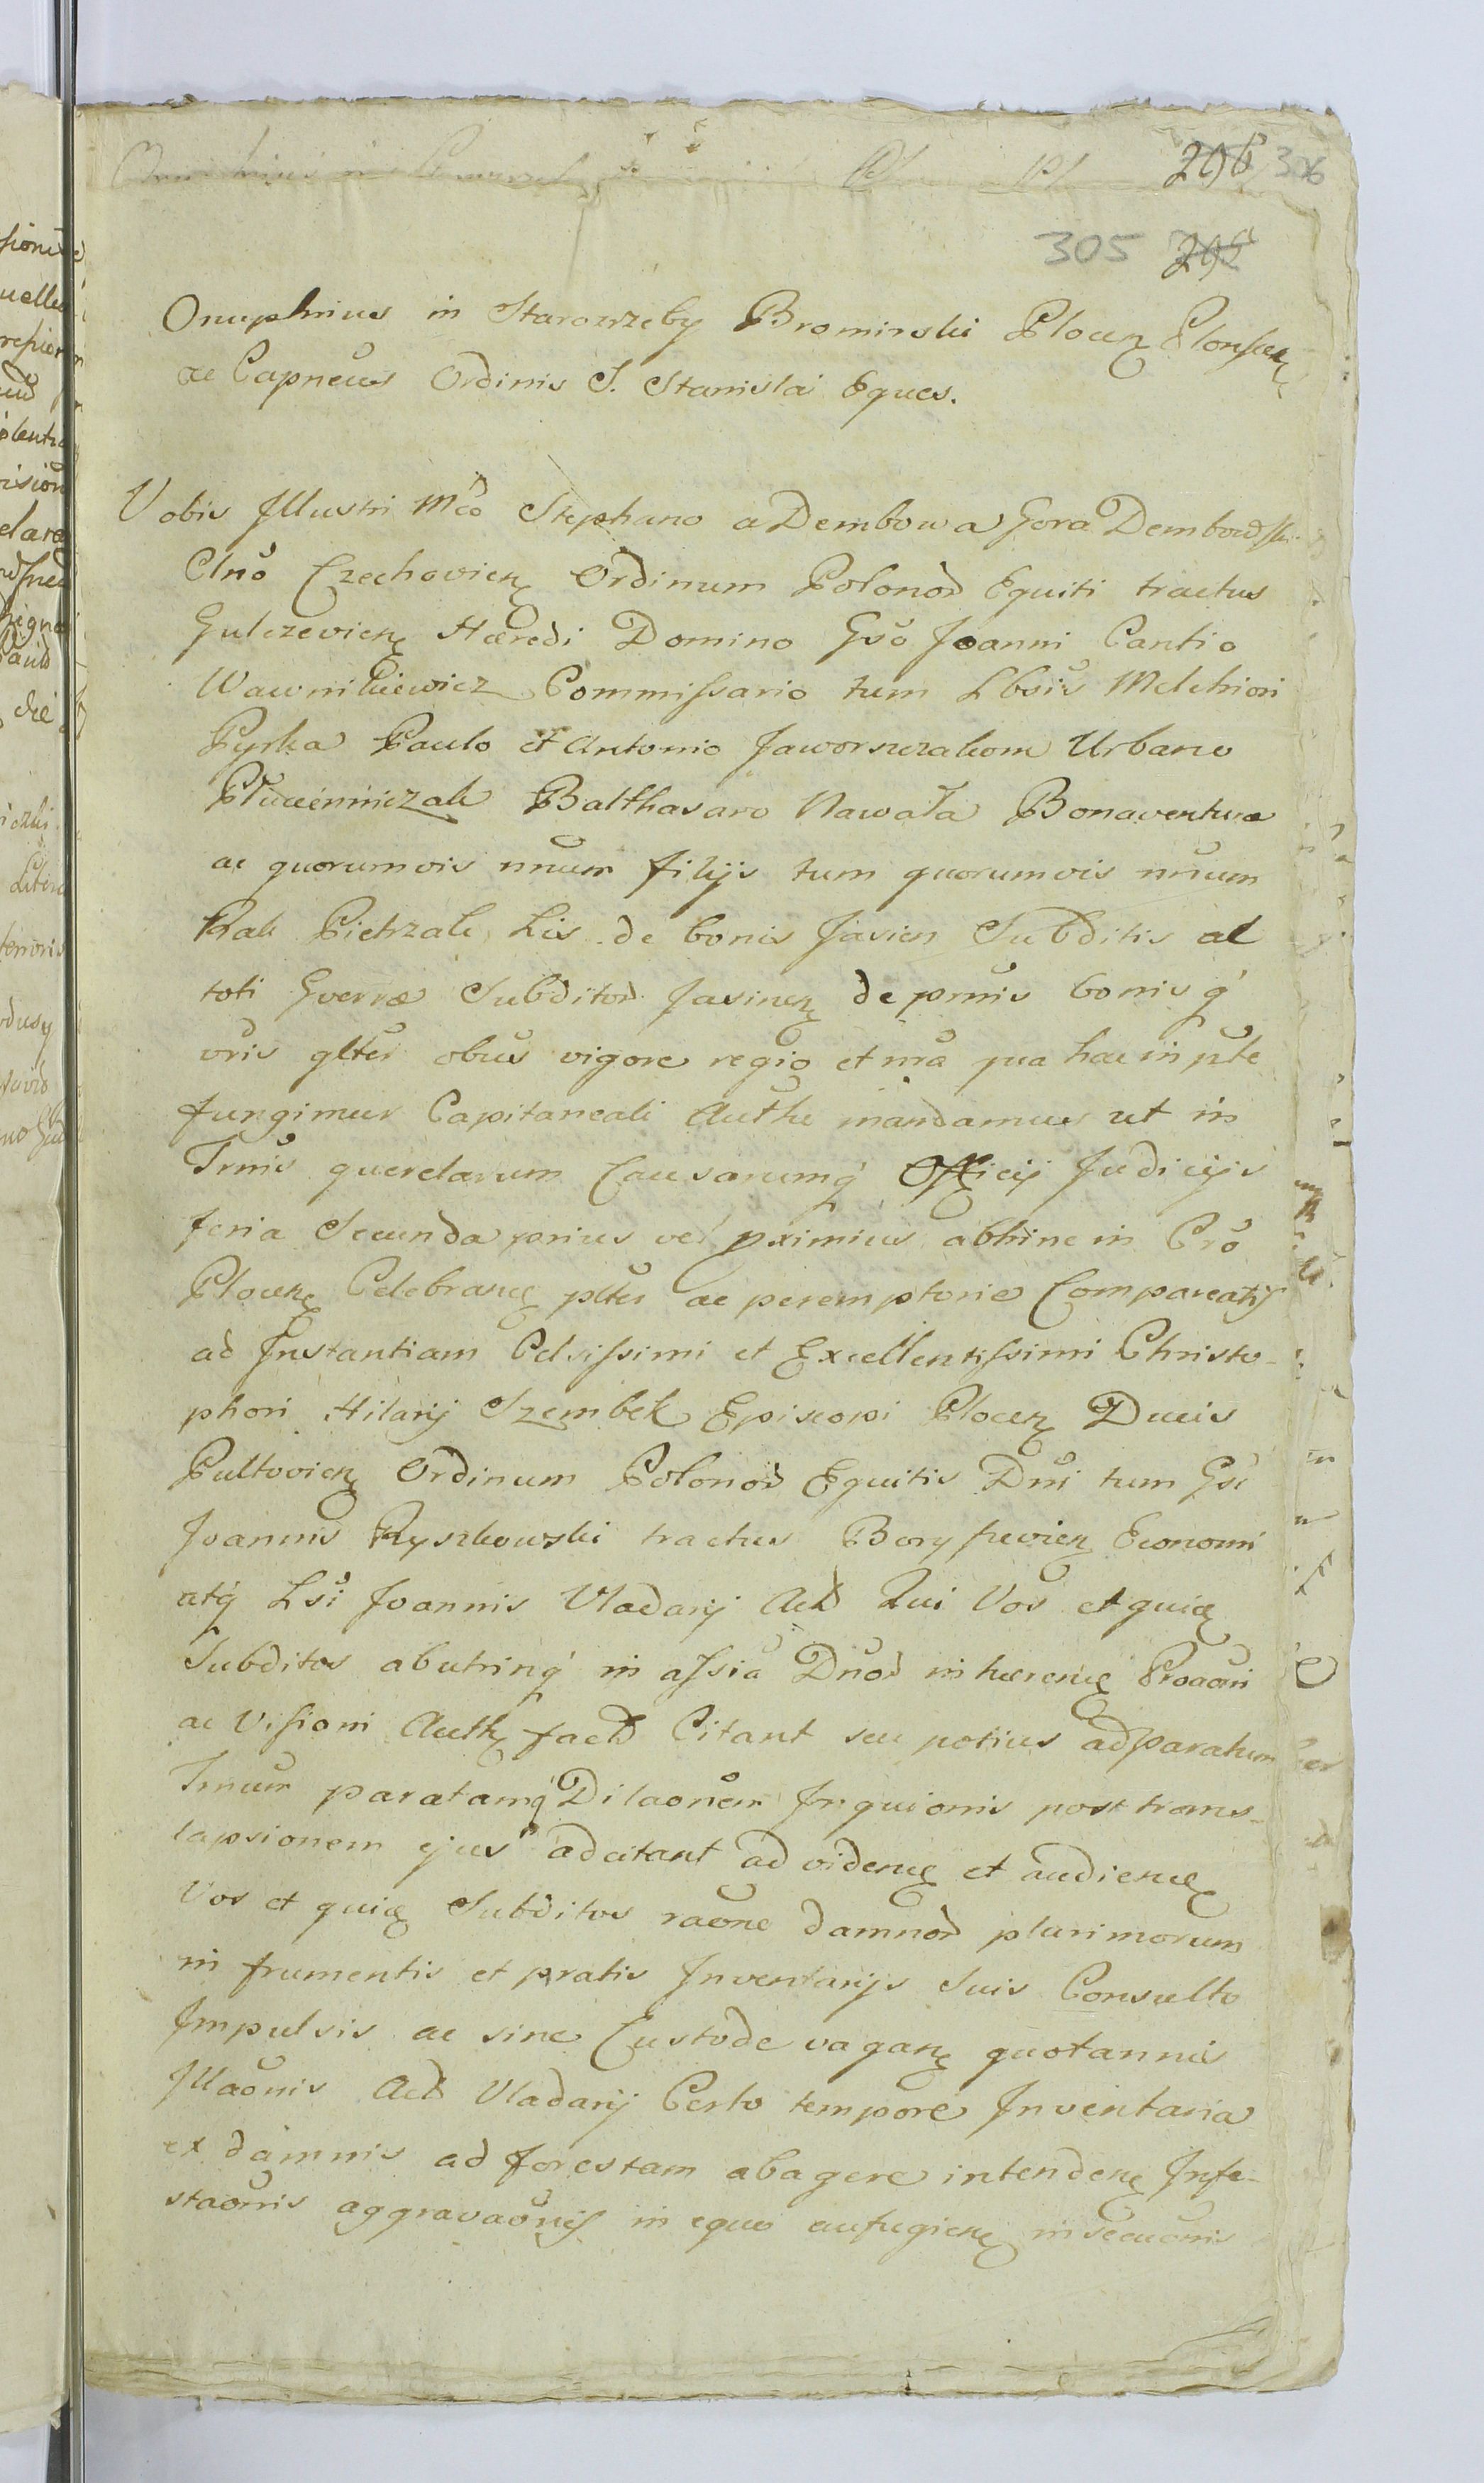 206 306
305 205
Onuphrius in Starozrzeby Brominski Plocen Plonscen
ac Capneus Ordinis S. Stanislai Eques.
Vobis Illustri Mco Stephano a Dembowa Gora Dembowski
Clno Czechovien Ordinum Polonor Equiti tractus
Gulczevien Hæredi Domino Gso Joanni Cantio
Wawnikiewicz Commissario tum Lbsis Melchiori
Pyrka Paulo et Antonio Jaworszczakom Urbano
Balthasaro Nawała Bonaventuræ
ac quorumvis nnum filijs tum quorumvis nnum
Rak Pietrzak Lis de bonis Jasien Subditis al
toti Gverræ Subditor Jasinen de prmis bonisq
vris glter obus vigore regio et ma qua hac in pte
fungimur Capitaneali Authe mandamus ut in
Trmis querelarum Causarumq Officij Judicijs
feria Secunda prius vel pximius abhinc in Cro
Plocen Celebranc plter ac peremptorie Compareatis
ad Instantiam Celsissimi et Excellentissimi Christo-
phori Hilarij Szembek Episcopi Plocen Ducis
Pultovien Ordinum Polonor Equitis Dni tum Gsi
Joannis Ryszkowski tractus Borysevien Economi
atq Lsi Joannis Vladarij Act Qui Vos et quic
Subditos abutrinq in assia Dnor inhærenc Proaoni
ac Visioni Auth fact Citant seu potius ad paratum
Trnum paratamq Dilaonem Inquionis post trans-
lapsionem ejus adcitant ad videnc et audienc
Vos et quic Subditos raone damnor plurimorum
in frumentis et pratis Inventarijs Suis Consulto
Impulsis ac sine Custode vagan quotannis
Illaonis Act Vladarij Certo tempore Inventaria
ex damnis ad forestam abagere intenden Infe-
staonis aggravaonis in equo aufugien insecuonis